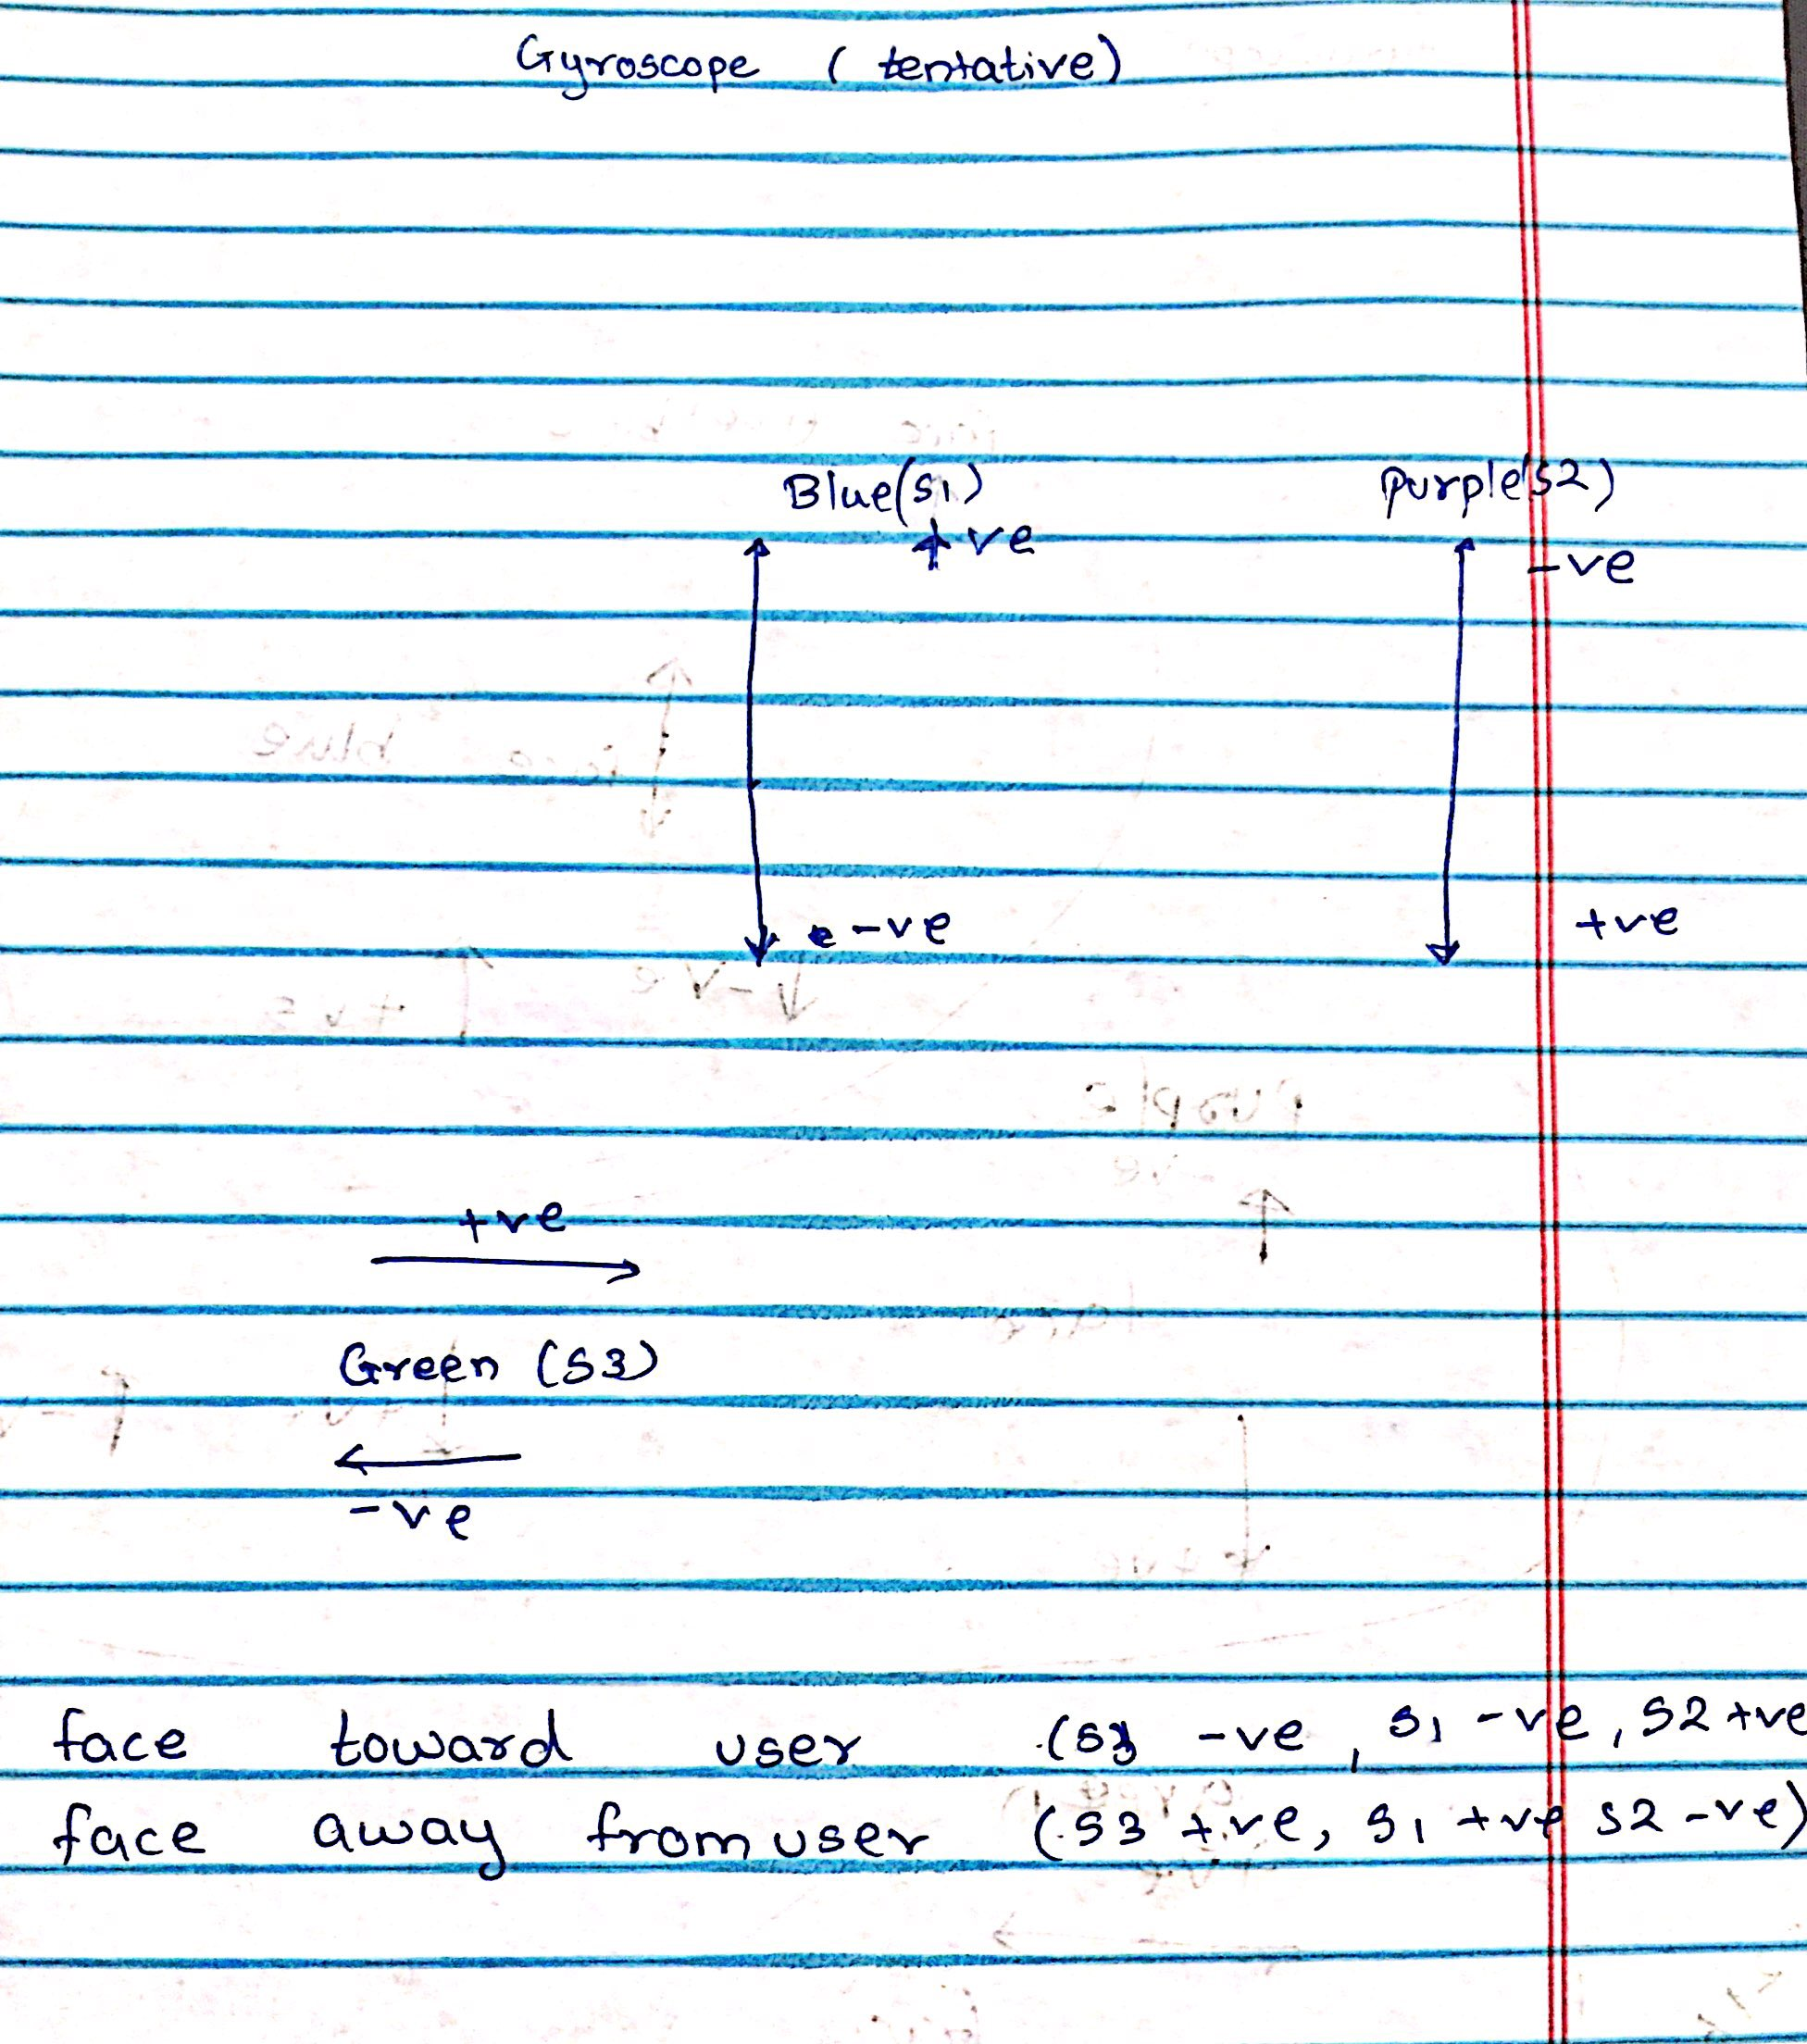 Gyroscope (tentative)
Blue(S1) Purple(S2)
+ve -ve
-ve +ve
+ve
Green (S3)
-ve
face toward user (S3 -ve, S1 -ve, S2 +ve
face away from user (S3 +ve, S1 +ve S2 -ve)